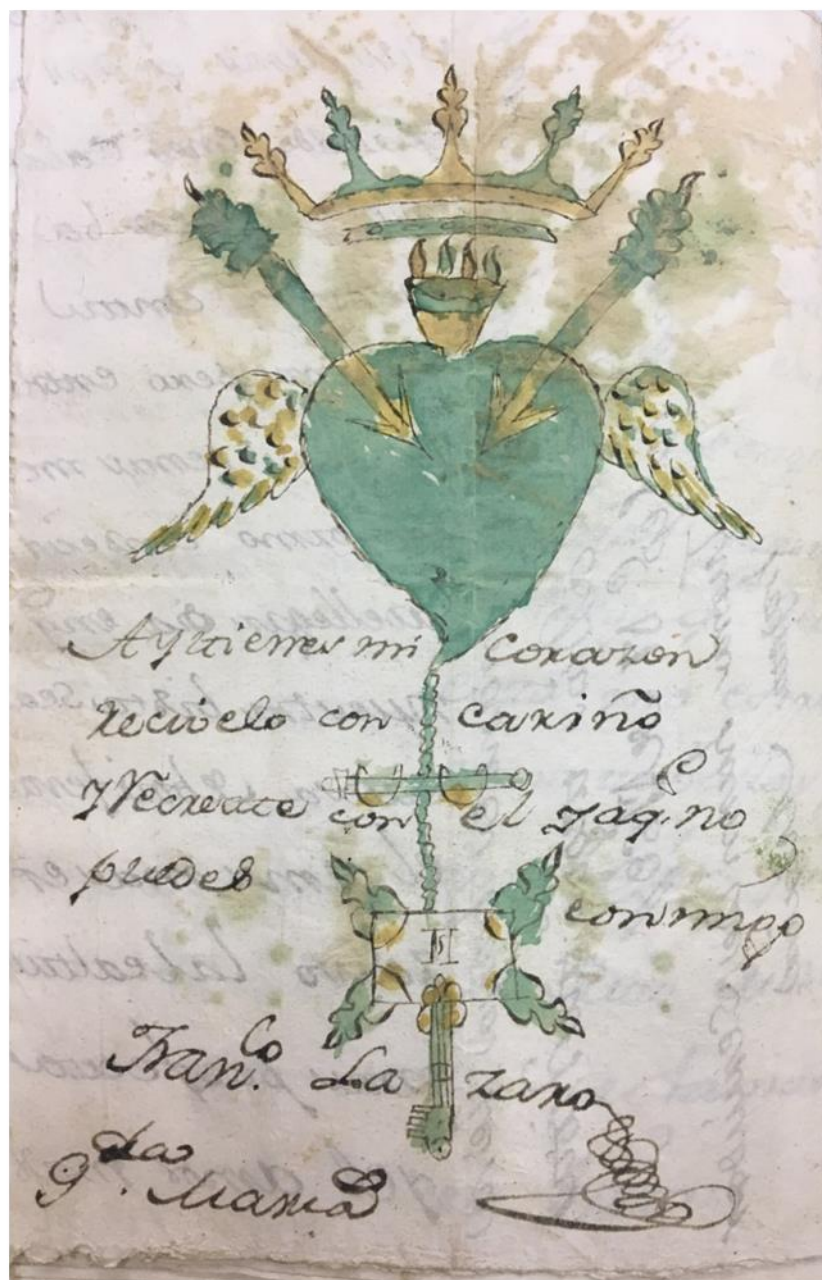 Ay tienes mi corazon
Recivelo con cariño
y Recreate con el ya q.e no
puedes conmigo
Fran.co Lazaro
Maria